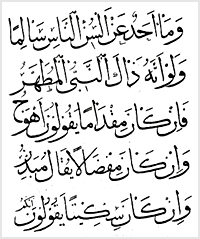 وَمَا أَحَدٌ عَنْ أَلْسُنِ النَّاسِ سَالِمًا
وَلَوْ أَنَّهُ ذَاكَ النَّبِيُّ الْمُطَهَّرُ
فَإِنْ كَانَ مِقْدَامًا يَقُولُونَ أَهْوَجُ
وَإِنْ كَانَ مِفْضَالًا يُقَالُ مُبَذِّرُ
وَإِنْ كَانَ سِكِّيتًا يَقُولُونَ أَبْكَمُ